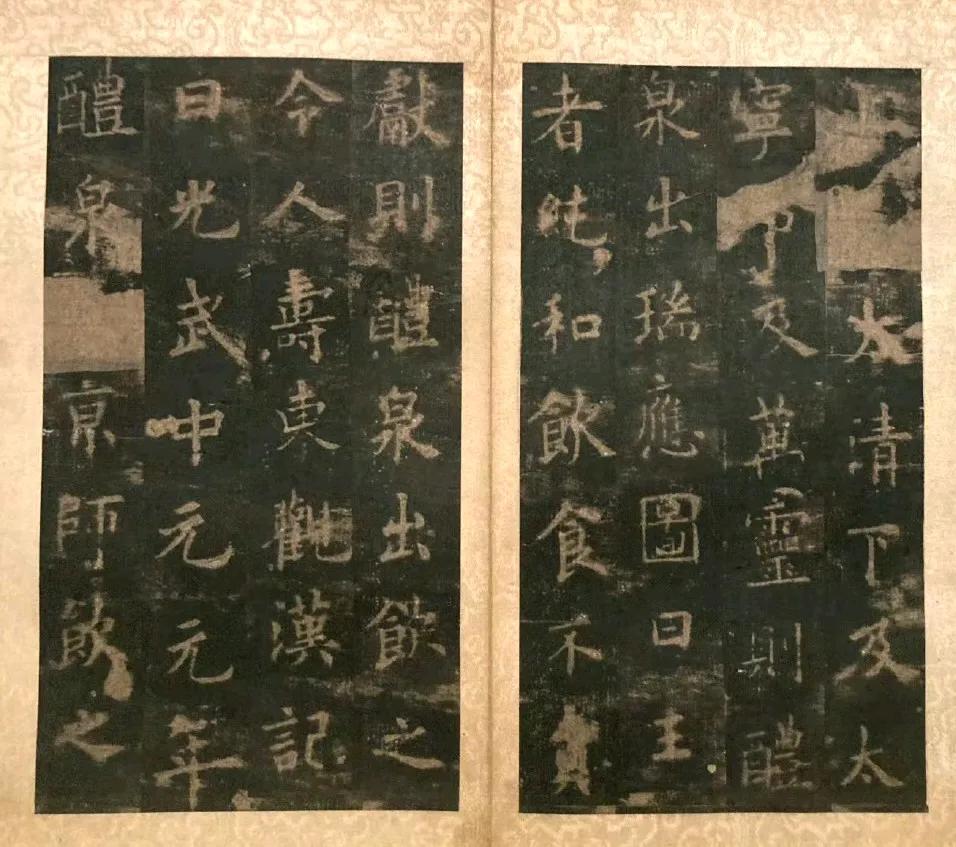 太清下及太
寧中及萬靈則醴
泉出瑞應圖曰王
者純和飲食不貢
獻則醴泉出飲之
令人壽東觀漢記
曰光武中元元年
醴泉京師飲之